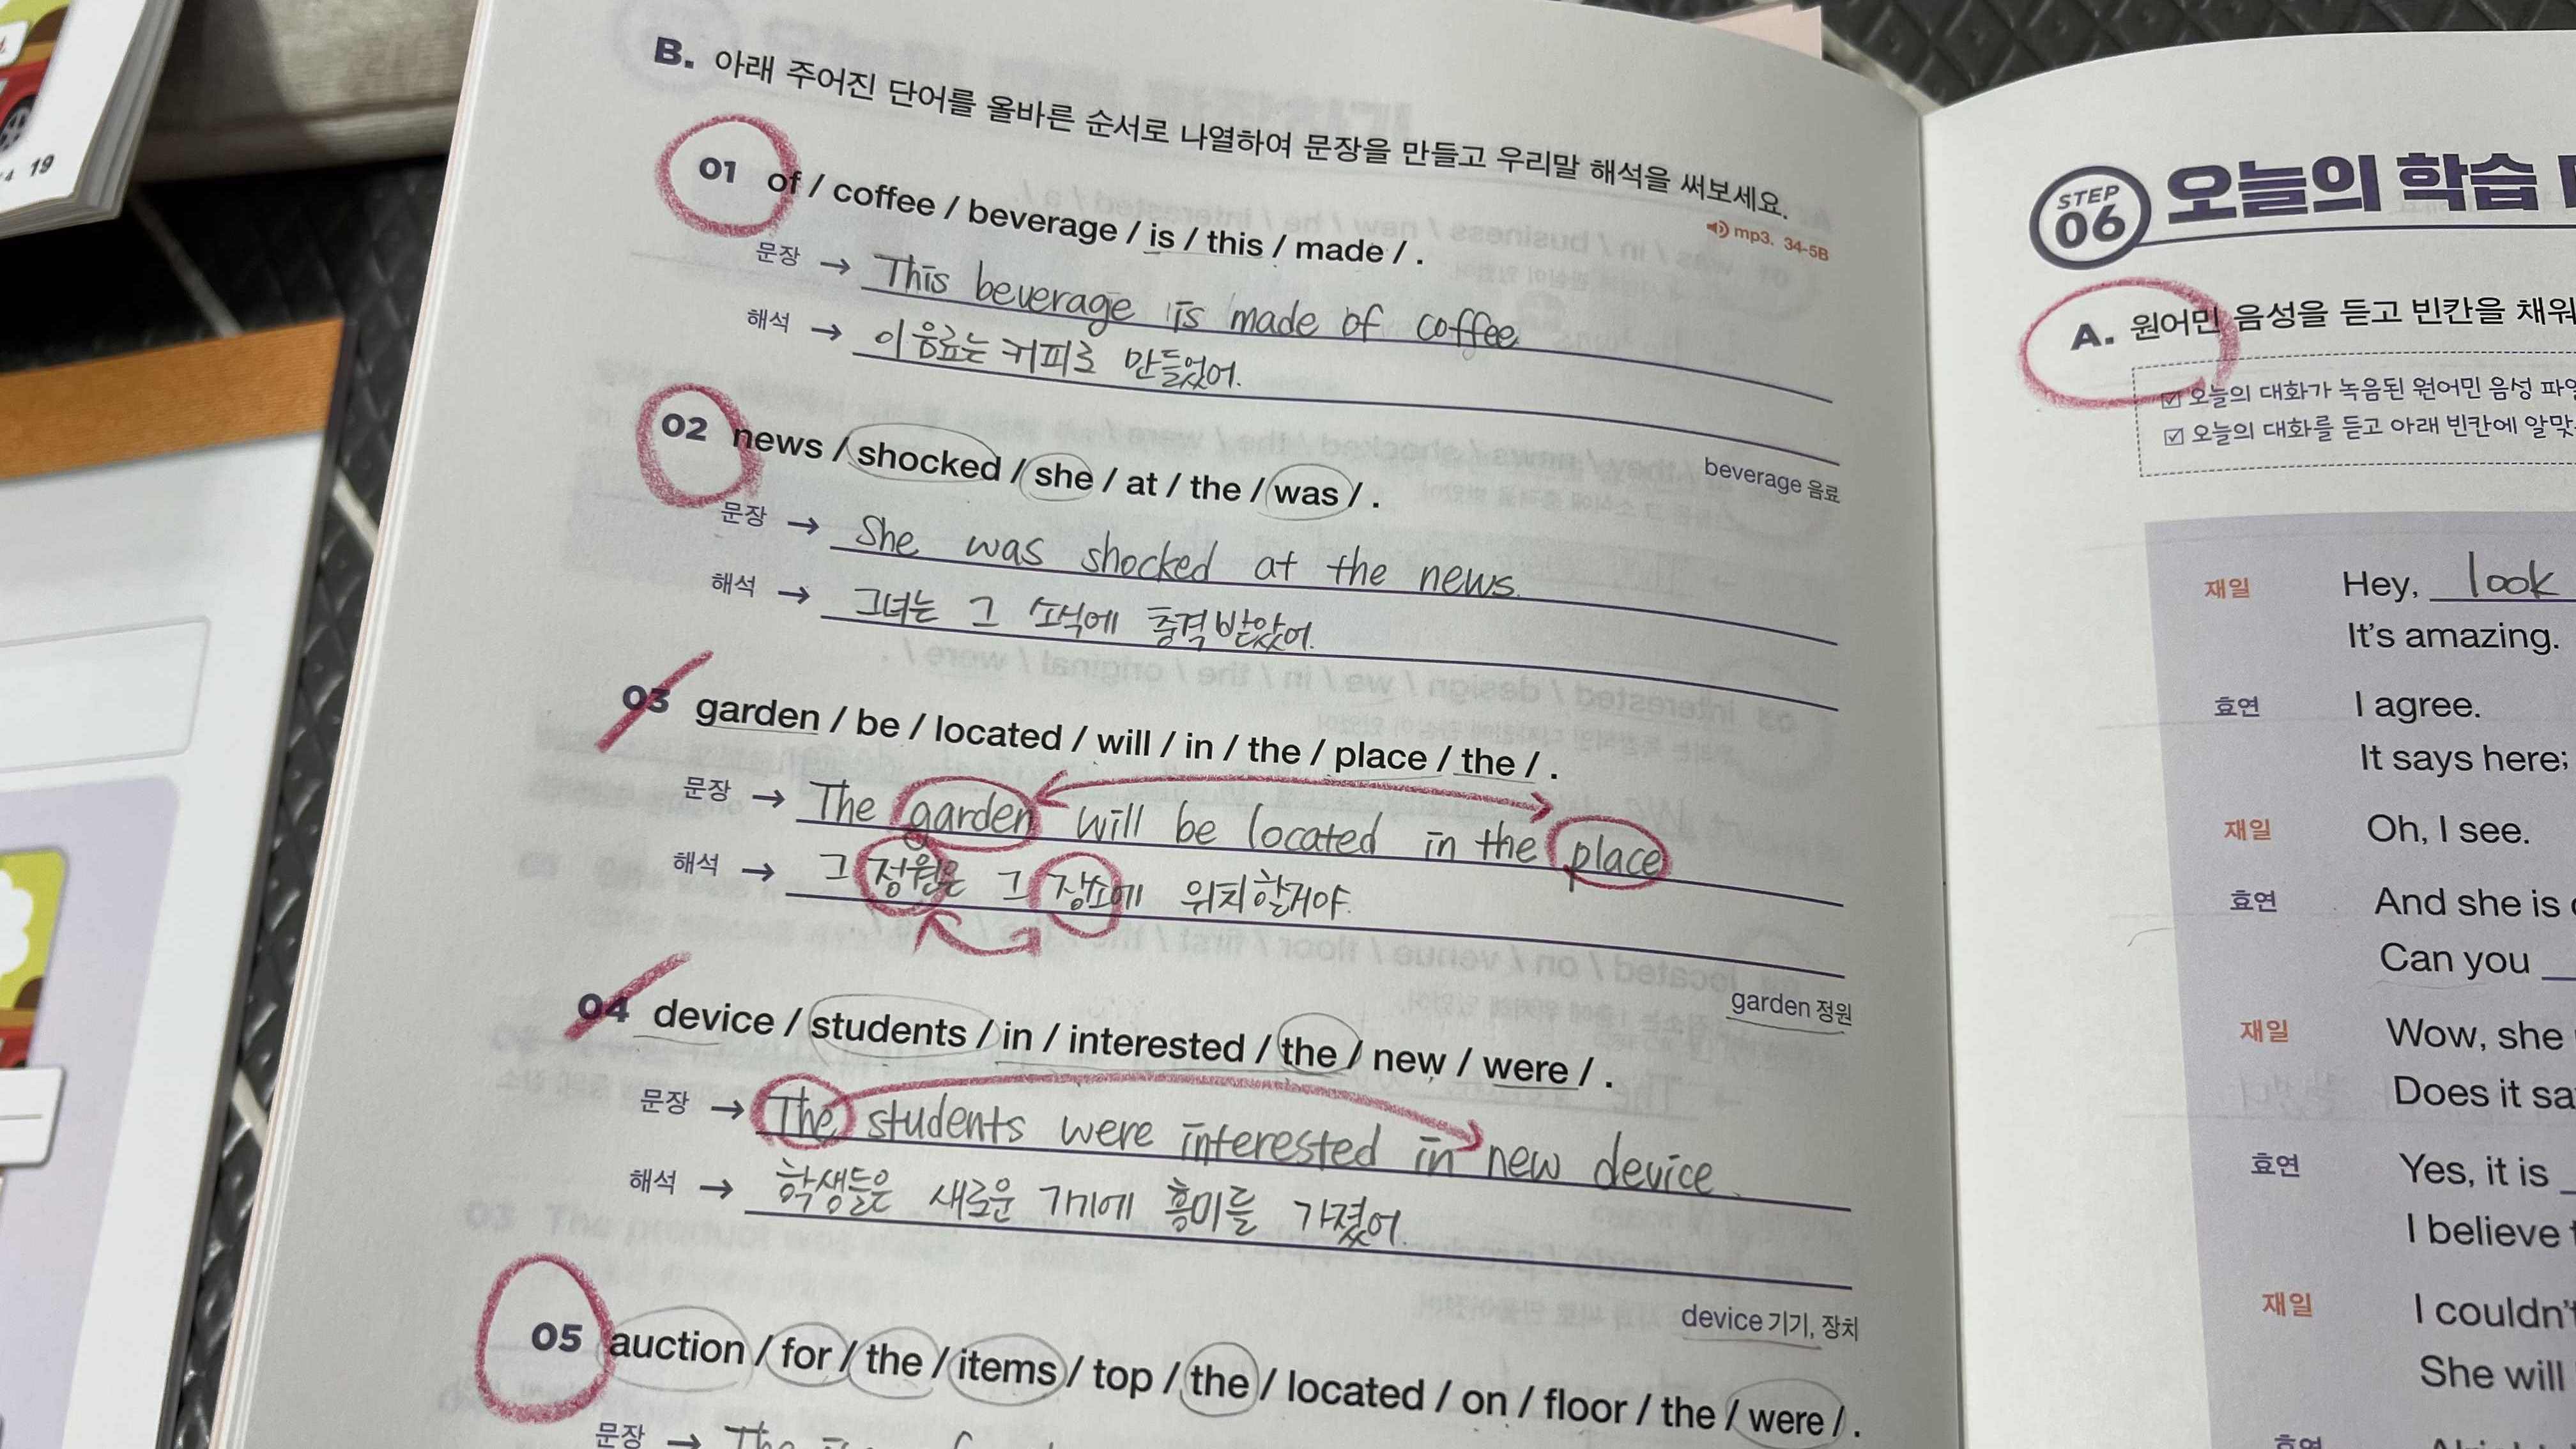 19
B. 아래 주어진 단어를 올바른 순서로 나열하여 문장을 만들고 우리말 해석을 써보세요.
mp3. 34-5B
01 of / coffee / beverage / is / this / made / .
문장 → This beverage is made of coffee
해석 → 이 음료는 커피로 만들었어.
beverage 음료
02 news / shocked / she / at / the / was / .
문장 → She was shocked at the news.
해석 → 그녀는 그 소식에 충격 받았어.
03 garden / be / located / will / in / the / place / the / .
문장 → The garden will be located in the place
해석 → 그 정원은 그 장소에 위치할거야.
garden 정원
04 device / students / in / interested / the / new / were / .
문장 → The students were interested in new device.
해석 → 학생들은 새로운 기기에 흥미를 가졌어.
device 기기, 장치
05 auction / for / the / items / top / the / located / on / floor / the / were / .
문장 → The
STEP 06 오늘의 학습
A. 원어민 음성을 듣고 빈칸을 채워
오늘의 대화가 녹음된 원어민 음성
오늘의 대화를 듣고 아래 빈칸에
재일 Hey, look
It's amazing.
효연 I agree.
It says here;
재일 Oh, I see.
효연 And she is
Can you
재일 Wow, she
Does it
효연 Yes, it is
I believe
재일 I couldn't
She will
효연